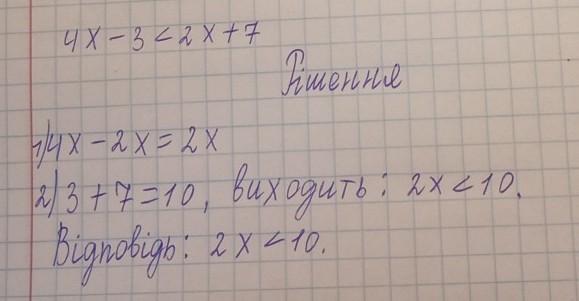 4x - 3 < 2x + 7
Рішення
1) 4x - 2x = 2x
2) 3 + 7 = 10, виходить: 2x < 10.
Відповідь: 2x < 10.